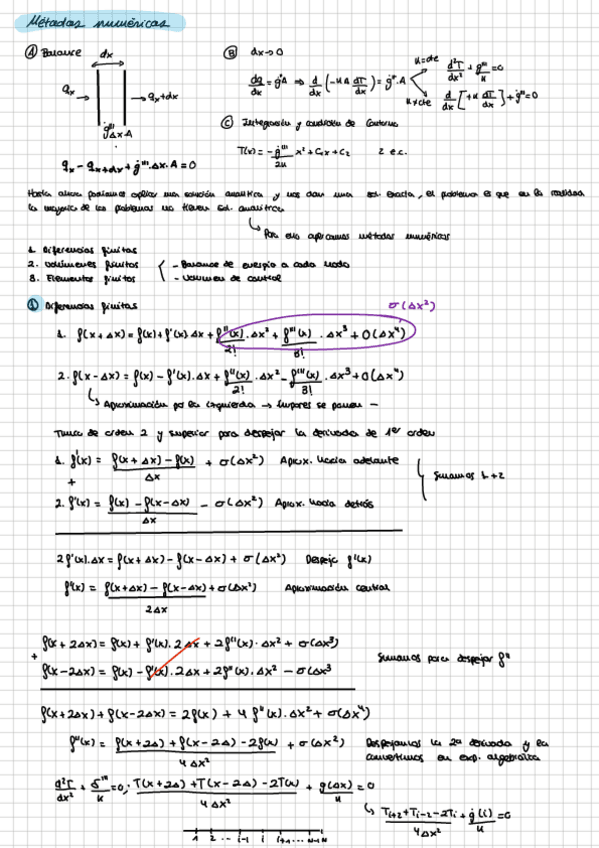 Métodos numéricos
Ⓐ Balance dx
qx → → qx+dx
ġ''' Δx·A
qx - qx+dx + ġ'''·Δx·A = 0
Ⓑ dx→0
dq/dx = ġ'''A ⇒ d/dx (-kA dT/dx) = ġ'''·A
k=cte d²T/dx² + ġ'''/k = 0
k≠cte d/dx [+k dT/dx] + ġ''' = 0
Ⓒ Integración y condición de contorno
T(x) = -ġ'''/2k x² + C₁x + C₂ 2 e.c.
Hasta ahora podíamos aplicar una solución analítica y nos dan una sol. exacta, el problema es que en la realidad
la mayoría de los problemas no tienen sol. analítica
↳ Para ello aplicamos métodos numéricos
1. Diferencias finitas
2. Volúmenes finitos - Balance de energía a cada nodo
3. Elementos finitos - Volumen de control
① Diferencias finitas σ(Δx²)
1. f(x+Δx) = f(x) + f'(x)·Δx + f''(x)/2!·Δx² + f'''(x)/3!·Δx³ + O(Δx⁴)
2. f(x-Δx) = f(x) - f'(x)·Δx + f''(x)/2!·Δx² - f'''(x)/3!·Δx³ + O(Δx⁴)
↳ Aproximación por la izquierda → Impares se ponen -
de orden 2 y superior para despejar la derivada de 1er orden
1. f'(x) = f(x+Δx) - f(x)/Δx + σ(Δx²) Aprox. hacia adelante
+
2. f'(x) = f(x) - f(x-Δx)/Δx - σ(Δx²) Aprox. hacia detrás
Sumamos 1+2
2f'(x)·Δx = f(x+Δx) - f(x-Δx) + σ(Δx²) Despejo f'(x)
f'(x) = f(x+Δx) - f(x-Δx)/2Δx + σ(Δx²) Aproximación central
f(x+2Δx) = f(x) + f'(x)·2Δx + 2f''(x)·Δx² + σ(Δx³)
+
f(x-2Δx) = f(x) - f'(x)·2Δx + 2f''(x)·Δx² - σ(Δx³
Sumamos para despejar f''
f(x+2Δx) + f(x-2Δx) = 2f(x) + 4f''(x)·Δx² + σ(Δx⁴)
f''(x) = f(x+2Δ) + f(x-2Δ) - 2f(x)/4Δx² + σ(Δx²) Despejamos la 2ª derivada y la
convertimos en exp. algebraica
d²T/dx² + ġ'''/k = 0; T(x+2Δ) + T(x-2Δ) - 2T(x)/4Δx² + g(Δx)/k = 0
↳ Ti+2 + Ti-2 - 2Ti/4Δx² + ġ(i)/k = 0
1 2 ... i-1 i i+1 ... N-1 N